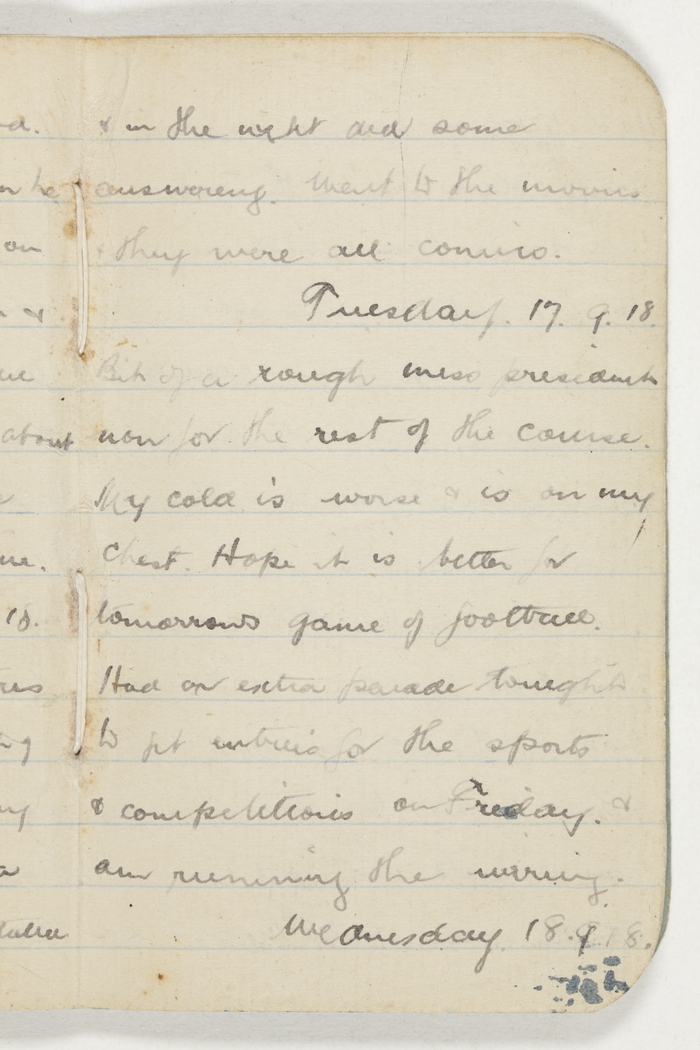 & in the night did some
answering. Went to the movies
& they were all comics.
Tuesday. 17. 9. 18.
Bit of a rough mess president
now for the rest of the course.
My cold is worse & is on my
chest. Hope it is better for
tomorrows game of football.
Had an extra parade tonight
to get entries for the sports
& competitions on Friday. &
am running the wiring.
Wednesday. 18. 9. 18.
about
on